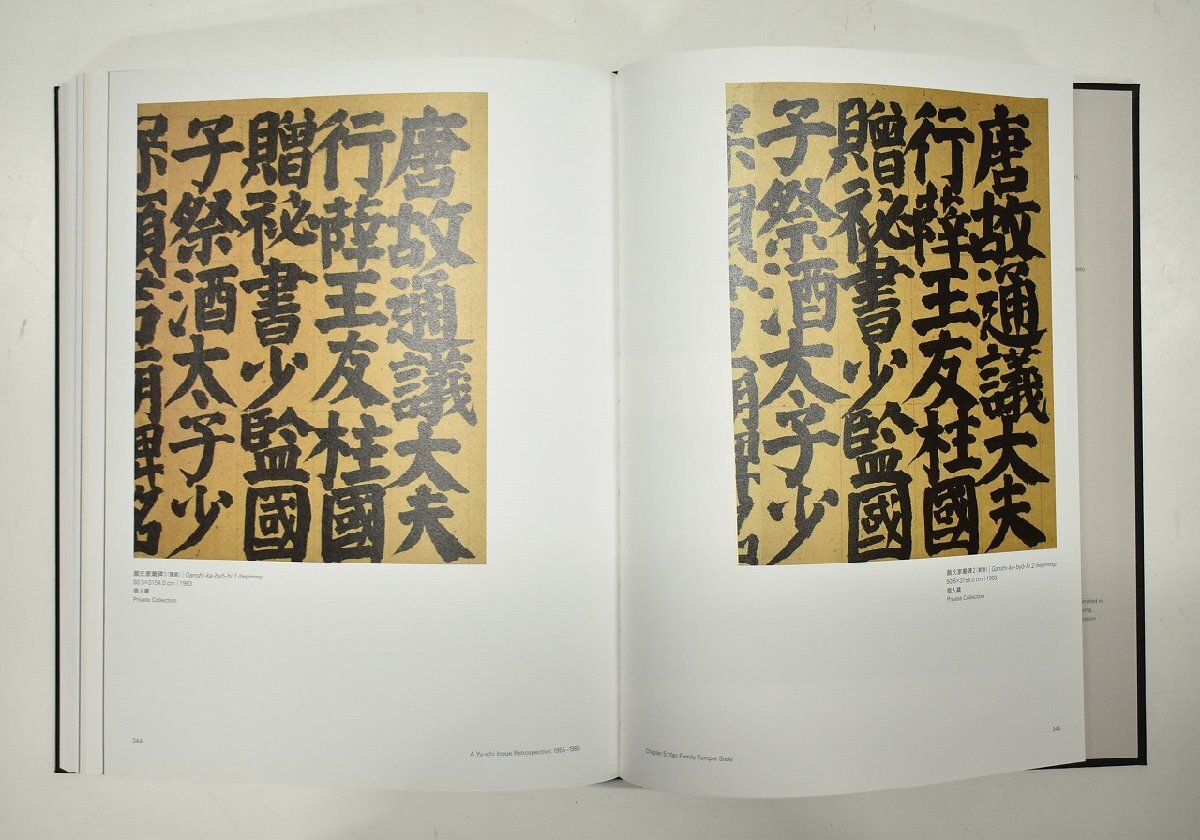 唐故通議大夫
行薛王友柱國
贈祕書少監國
子祭酒太子少
保顔君廟碑銘
顔氏家廟碑1(冒頭) | Ganshi-ka-byō-hi 1 (beginning)
50.5×3154.0 cm | 1983
個人蔵
Private Collection
344
A Yu-ichi Inoue Retrospective: 1955-1985
唐故通議大夫
行薛王友柱國
贈祕書少監國
子祭酒太子少
保顔君廟碑銘
顔氏家廟碑2(冒頭) | Ganshi-ka-byō-hi 2 (beginning)
50.5×3154.0 cm | 1983
個人蔵
Private Collection
Chapter 5: Yan Family Temple Stele
345